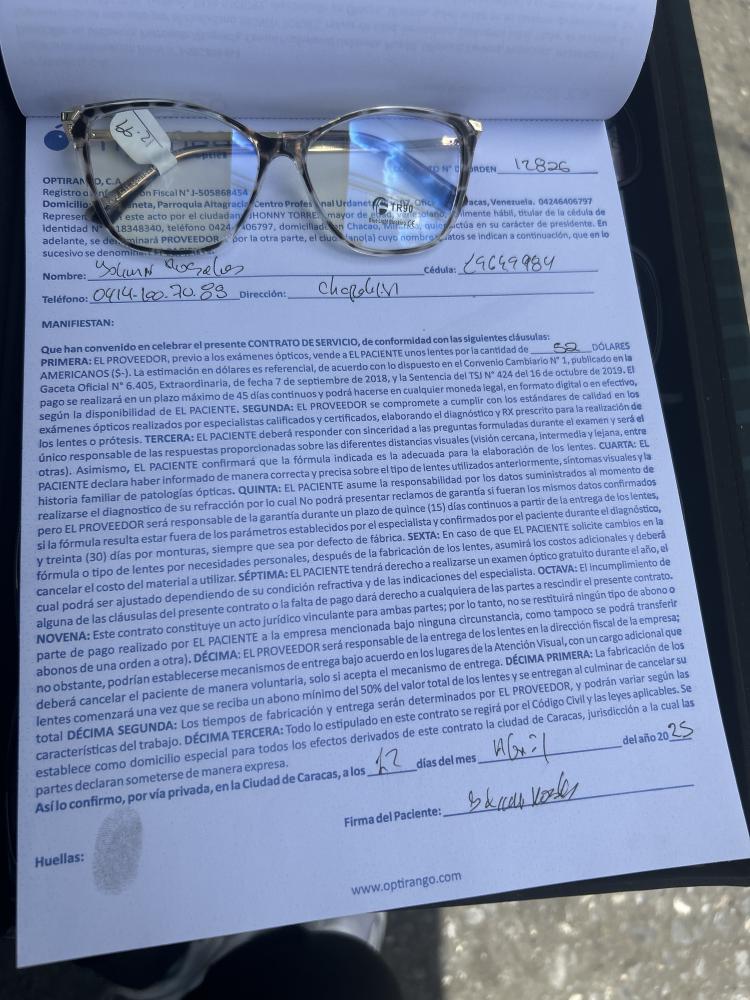 N° D ORDEN 12826
OPTIRANGO, C.A.
Registro ón Fiscal N° J-505868454
Domicilio neta, Parroquia Altagracia Centro Profesional Urdaneta Ofic acas, Venezuela. 04246406797
Represen este acto por el ciudadan JHONNY TORRE mayor de edad, venezolano, ilmente hábil, titular de la cédula de
Identidad N° 18348340, teléfono 0424 406797, domiciliad en Chacao, quien actúa en su carácter de presidente. En
adelante, se denominará PROVEEDOR por la otra parte, el ciudadano(a) cuyo nombre y datos se indican a continuación, que en lo
sucesivo se denomin EL
Nombre: Cédula: 19649984
Teléfono: 0414-100.70.89 Dirección:
MANIFIESTAN:
Que han convenido en celebrar el presente CONTRATO DE SERVICIO, de conformidad con las siguientes cláusulas:
PRIMERA: EL PROVEEDOR, previo a los exámenes ópticos, vende a EL PACIENTE unos lentes por la cantidad de 52 DÓLARES
AMERICANOS ($-). La estimación en dólares es referencial, de acuerdo con lo dispuesto en el Convenio Cambiario N° 1, publicado en la
Gaceta Oficial N° 6.405, Extraordinaria, de fecha 7 de septiembre de 2018, y la Sentencia del TSJ N° 424 del 16 de octubre de 2019. El
pago se realizará en un plazo máximo de 45 días continuos y podrá hacerse en cualquier moneda legal, en formato digital o en efectivo,
según la disponibilidad de EL PACIENTE. SEGUNDA: EL PROVEEDOR se compromete a cumplir con los estándares de calidad en los
exámenes ópticos realizados por especialistas calificados y certificados, elaborando el diagnóstico y RX prescrito para la realización de
los lentes o prótesis. TERCERA: EL PACIENTE deberá responder con sinceridad a las preguntas formuladas durante el examen y será el
único responsable de las respuestas proporcionadas sobre las diferentes distancias visuales (visión cercana, intermedia y lejana, entre
otras). Asimismo, EL PACIENTE confirmará que la fórmula indicada es la adecuada para la elaboración de los lentes. CUARTA: EL
PACIENTE declara haber informado de manera correcta y precisa sobre el tipo de lentes utilizados anteriormente, síntomas visuales y la
historia familiar de patologías ópticas. QUINTA: EL PACIENTE asume la responsabilidad por los datos suministrados al momento de
realizarse el diagnostico de su refracción por lo cual No podrá presentar reclamos de garantía si fueran los mismos datos confirmados
pero EL PROVEEDOR será responsable de la garantía durante un plazo de quince (15) días continuos a partir de la entrega de los lentes,
si la fórmula resulta estar fuera de los parámetros establecidos por el especialista y confirmados por el paciente durante el diagnóstico,
y treinta (30) días por monturas, siempre que sea por defecto de fábrica. SEXTA: En caso de que EL PACIENTE solicite cambios en la
fórmula o tipo de lentes por necesidades personales, después de la fabricación de los lentes, asumirá los costos adicionales y deberá
cancelar el costo del material a utilizar. SÉPTIMA: EL PACIENTE tendrá derecho a realizarse un examen óptico gratuito durante el año, el
cual podrá ser ajustado dependiendo de su condición refractiva y de las indicaciones del especialista. OCTAVA: El incumplimiento de
alguna de las cláusulas del presente contrato o la falta de pago dará derecho a cualquiera de las partes a rescindir el presente contrato.
NOVENA: Este contrato constituye un acto jurídico vinculante para ambas partes; por lo tanto, no se restituirá ningún tipo de abono o
parte de pago realizado por EL PACIENTE a la empresa mencionada bajo ninguna circunstancia, como tampoco se podrá transferir
abonos de una orden a otra). DÉCIMA: EL PROVEEDOR será responsable de la entrega de los lentes en la dirección fiscal de la empresa;
no obstante, podrían establecerse mecanismos de entrega bajo acuerdo en los lugares de la Atención Visual, con un cargo adicional que
deberá cancelar el paciente de manera voluntaria, solo si acepta el mecanismo de entrega. DÉCIMA PRIMERA: La fabricación de los
lentes comenzará una vez que se reciba un abono mínimo del 50% del valor total de los lentes y se entregan al culminar de cancelar su
total DÉCIMA SEGUNDA: Los tiempos de fabricación y entrega serán determinados por EL PROVEEDOR, y podrán variar según las
características del trabajo. DÉCIMA TERCERA: Todo lo estipulado en este contrato se regirá por el Código Civil y las leyes aplicables. Se
establece como domicilio especial para todos los efectos derivados de este contrato la ciudad de Caracas, jurisdicción a la cual las
partes declaran someterse de manera expresa.
Así lo confirmo, por vía privada, en la Ciudad de Caracas, a los 12 días del mes Abril del año 2025
Firma del Paciente:
Huellas:
www.optirango.com
TR90